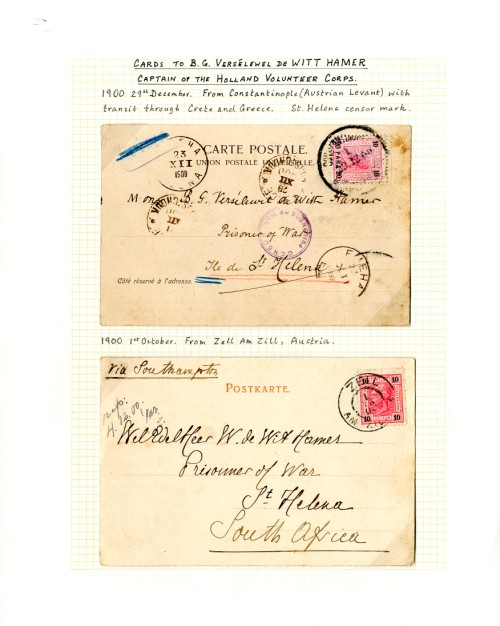 CARDS TO B.G. VERSÉLEWEL DE WITT HAMER
CAPTAIN OF THE HOLLAND VOLUNTEER CORPS.
1900 29th December. From Constantinople (Austrian Levant) with
transit through Crete and Greece. St. Helena censor mark.
CARTE POSTALE.
UNION POSTALE UNIVERSELLE.
23
XII
1900
10
10
Mons. B. G. Versélewel de Witt Hamer
Prisoner of War
Ile de St Helena
Côté réservé à l'adresse.
1900 1st October. From Zell Am Zill, Austria.
Via Southampton
POSTKARTE.
10
10
10
10
ZELL
AM
WelEdelHeer W. de Witt Hamer
Prisonner of War
St Helena
South Africa